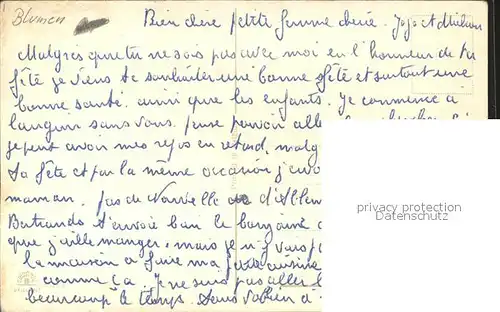 Blumen
Bien chère petite femme chérie. Jojo et
Malgrés que tu ne sois pas avec moi en l'honneur de ta
fête je viens te souhaiter une bonne fête et surtout une
bonne santé. ainsi que les enfants. Je commence a
languir sans vous. pense pouvoir alle
je peut avoir mes repos en retard, malg
Sa fête et par la même occasion j'
maman. pas de Nouvelle de
t'envoie bien le bonjour
que j'aille manger, mais je n'y vais p
la maison a faire ma petite cuisine
comme ça. Je ne suis pas aller
beaucoup le temps. Sans
privacy protection
Datenschutz